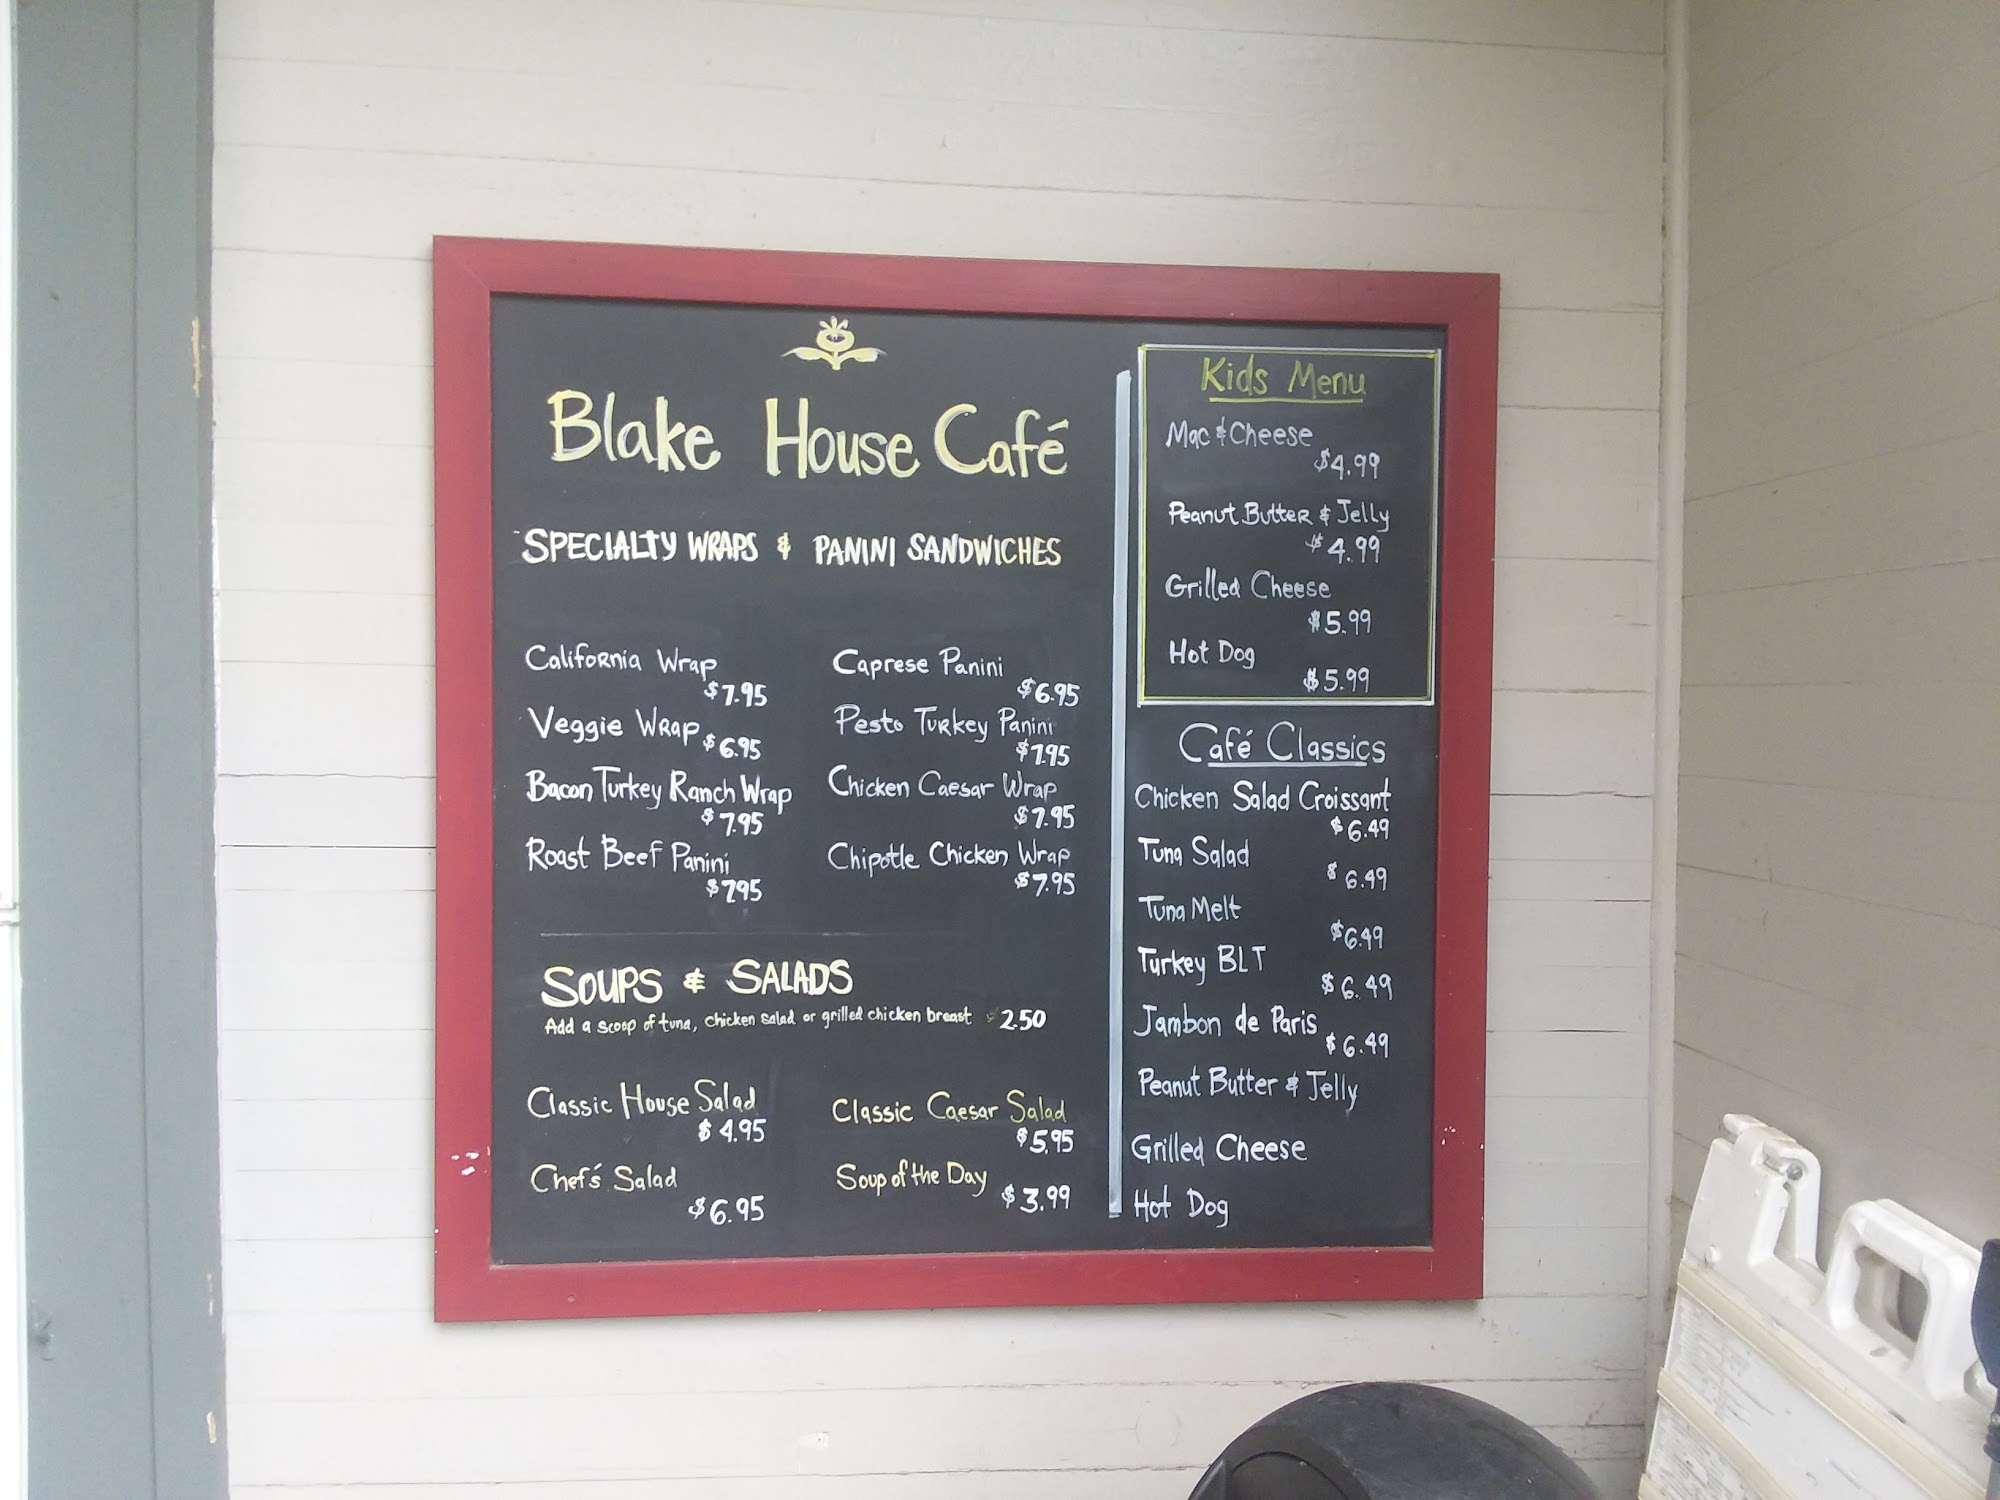 Blake House Café
SPECIALTY WRAPS & PANINI SANDWICHES
California Wrap
$7.95
Veggie Wrap $6.95
Bacon Turkey Ranch Wrap
$7.95
Roast Beef Panini
$7.95
Caprese Panini
$6.95
Pesto Turkey Panini
$7.95
Chicken Caesar Wrap
$7.95
Chipotle Chicken Wrap
$7.95
SOUPS & SALADS
Add a scoop of tuna, chicken salad or grilled chicken breast $2.50
Classic House Salad
$4.95
Chef's Salad
$6.95
Classic Caesar Salad
$5.95
Soup of the Day
$3.99
Kids Menu
Mac & Cheese
$4.99
Peanut Butter & Jelly
$4.99
Grilled Cheese
$5.99
Hot Dog
$5.99
Café Classics
Chicken Salad Croissant
$6.49
Tuna Salad
$6.49
Tuna Melt
$6.49
Turkey BLT
$6.49
Jambon de Paris
$6.49
Peanut Butter & Jelly
Grilled Cheese
Hot Dog